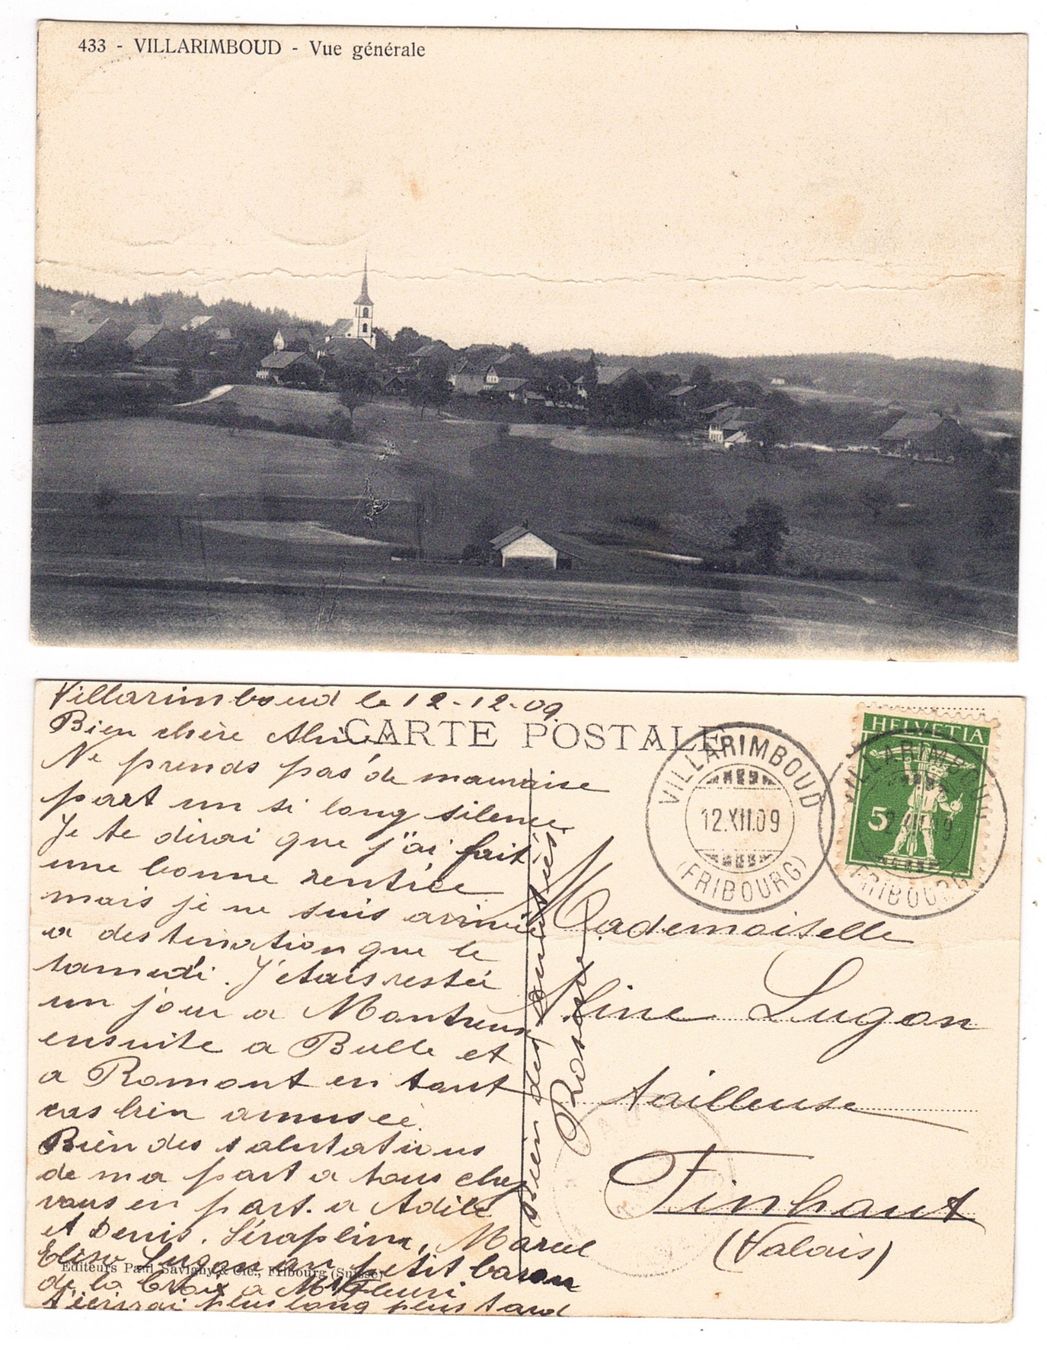 433 - VILLARIMBOUD - Vue générale
Villarimboud le 12-12-09
CARTE POSTALE
Bien chère Aline
Ne prends pas de mauvaise
part un si long silence
Je te dirai que j'ai fait
une bonne rentrée
mais je ne suis arrivée
a destination que le
samedi. J'étais restée
un jour a Montreux
ensuite a Bulle et
a Romont en tout
cas bien amusée.
Bien des salutations
de ma part a tous chez
vous en part. a Adile
et Denis, Séraphine, Marcel
Elise Lugon au petit baron
de la Croix a Mr Fleuri
t'écrirai plus long plus tard
Editeurs Paul Savigny & Cie., Fribourg (Suisse)
Bien des amitiés
Rosette
HELVETIA
5
VILLARIMBOUD
12.XII.09
(FRIBOURG)
VILLARIMBOUD
12.XII.09
(FRIBOURG)
Mademoiselle
Aline Lugon
tailleuse
Finhaut
(Valais)